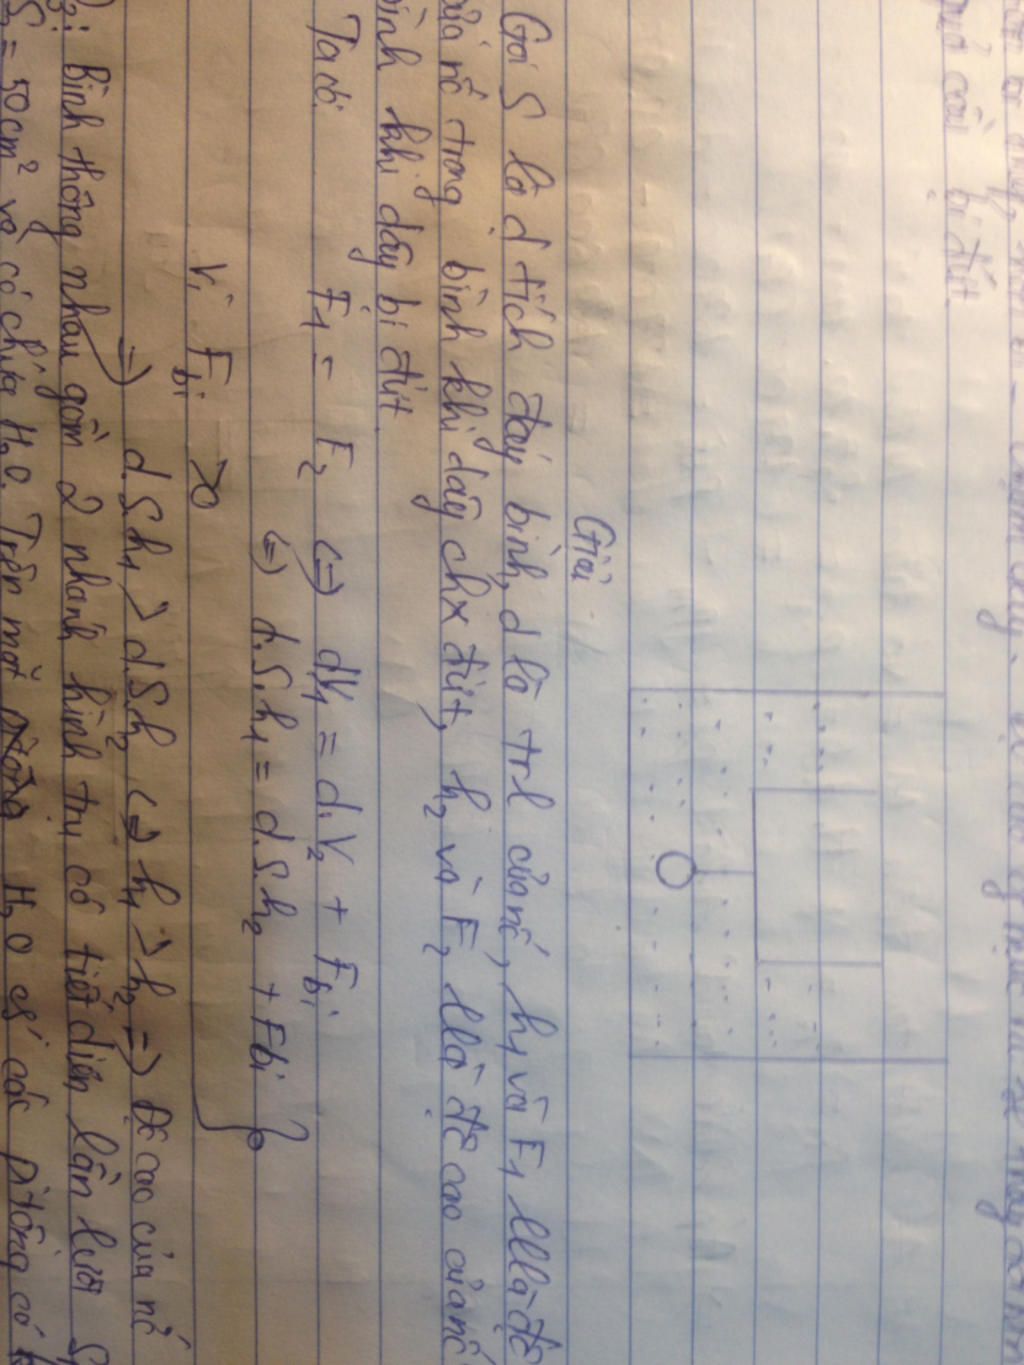 quả cầu bị đứt
Giải
Gọi S là d tích đáy bình, d là trl của nc, h1 và F1 lllà độ
của nc trong bình khi dây chx đứt, h2 và F2 lllà độ cao của nc
bình khi dây bị đứt.
Ta có: F1 = F2 <=> dV1 = d.V2 + Fbi
<=> d.S.h1 = d.S.h2 + Fbi
Vì Fbi > 0
=> d.S.h1 > d.S.h2 <=> h1 > h2 => Độ cao của nc
B3: Bình thông nhau gồm 2 nhánh hình trụ có tiết diện lần lượt S1
S2 = 50cm² và có chứa H2O. Trên mặt H2O có các pittông có